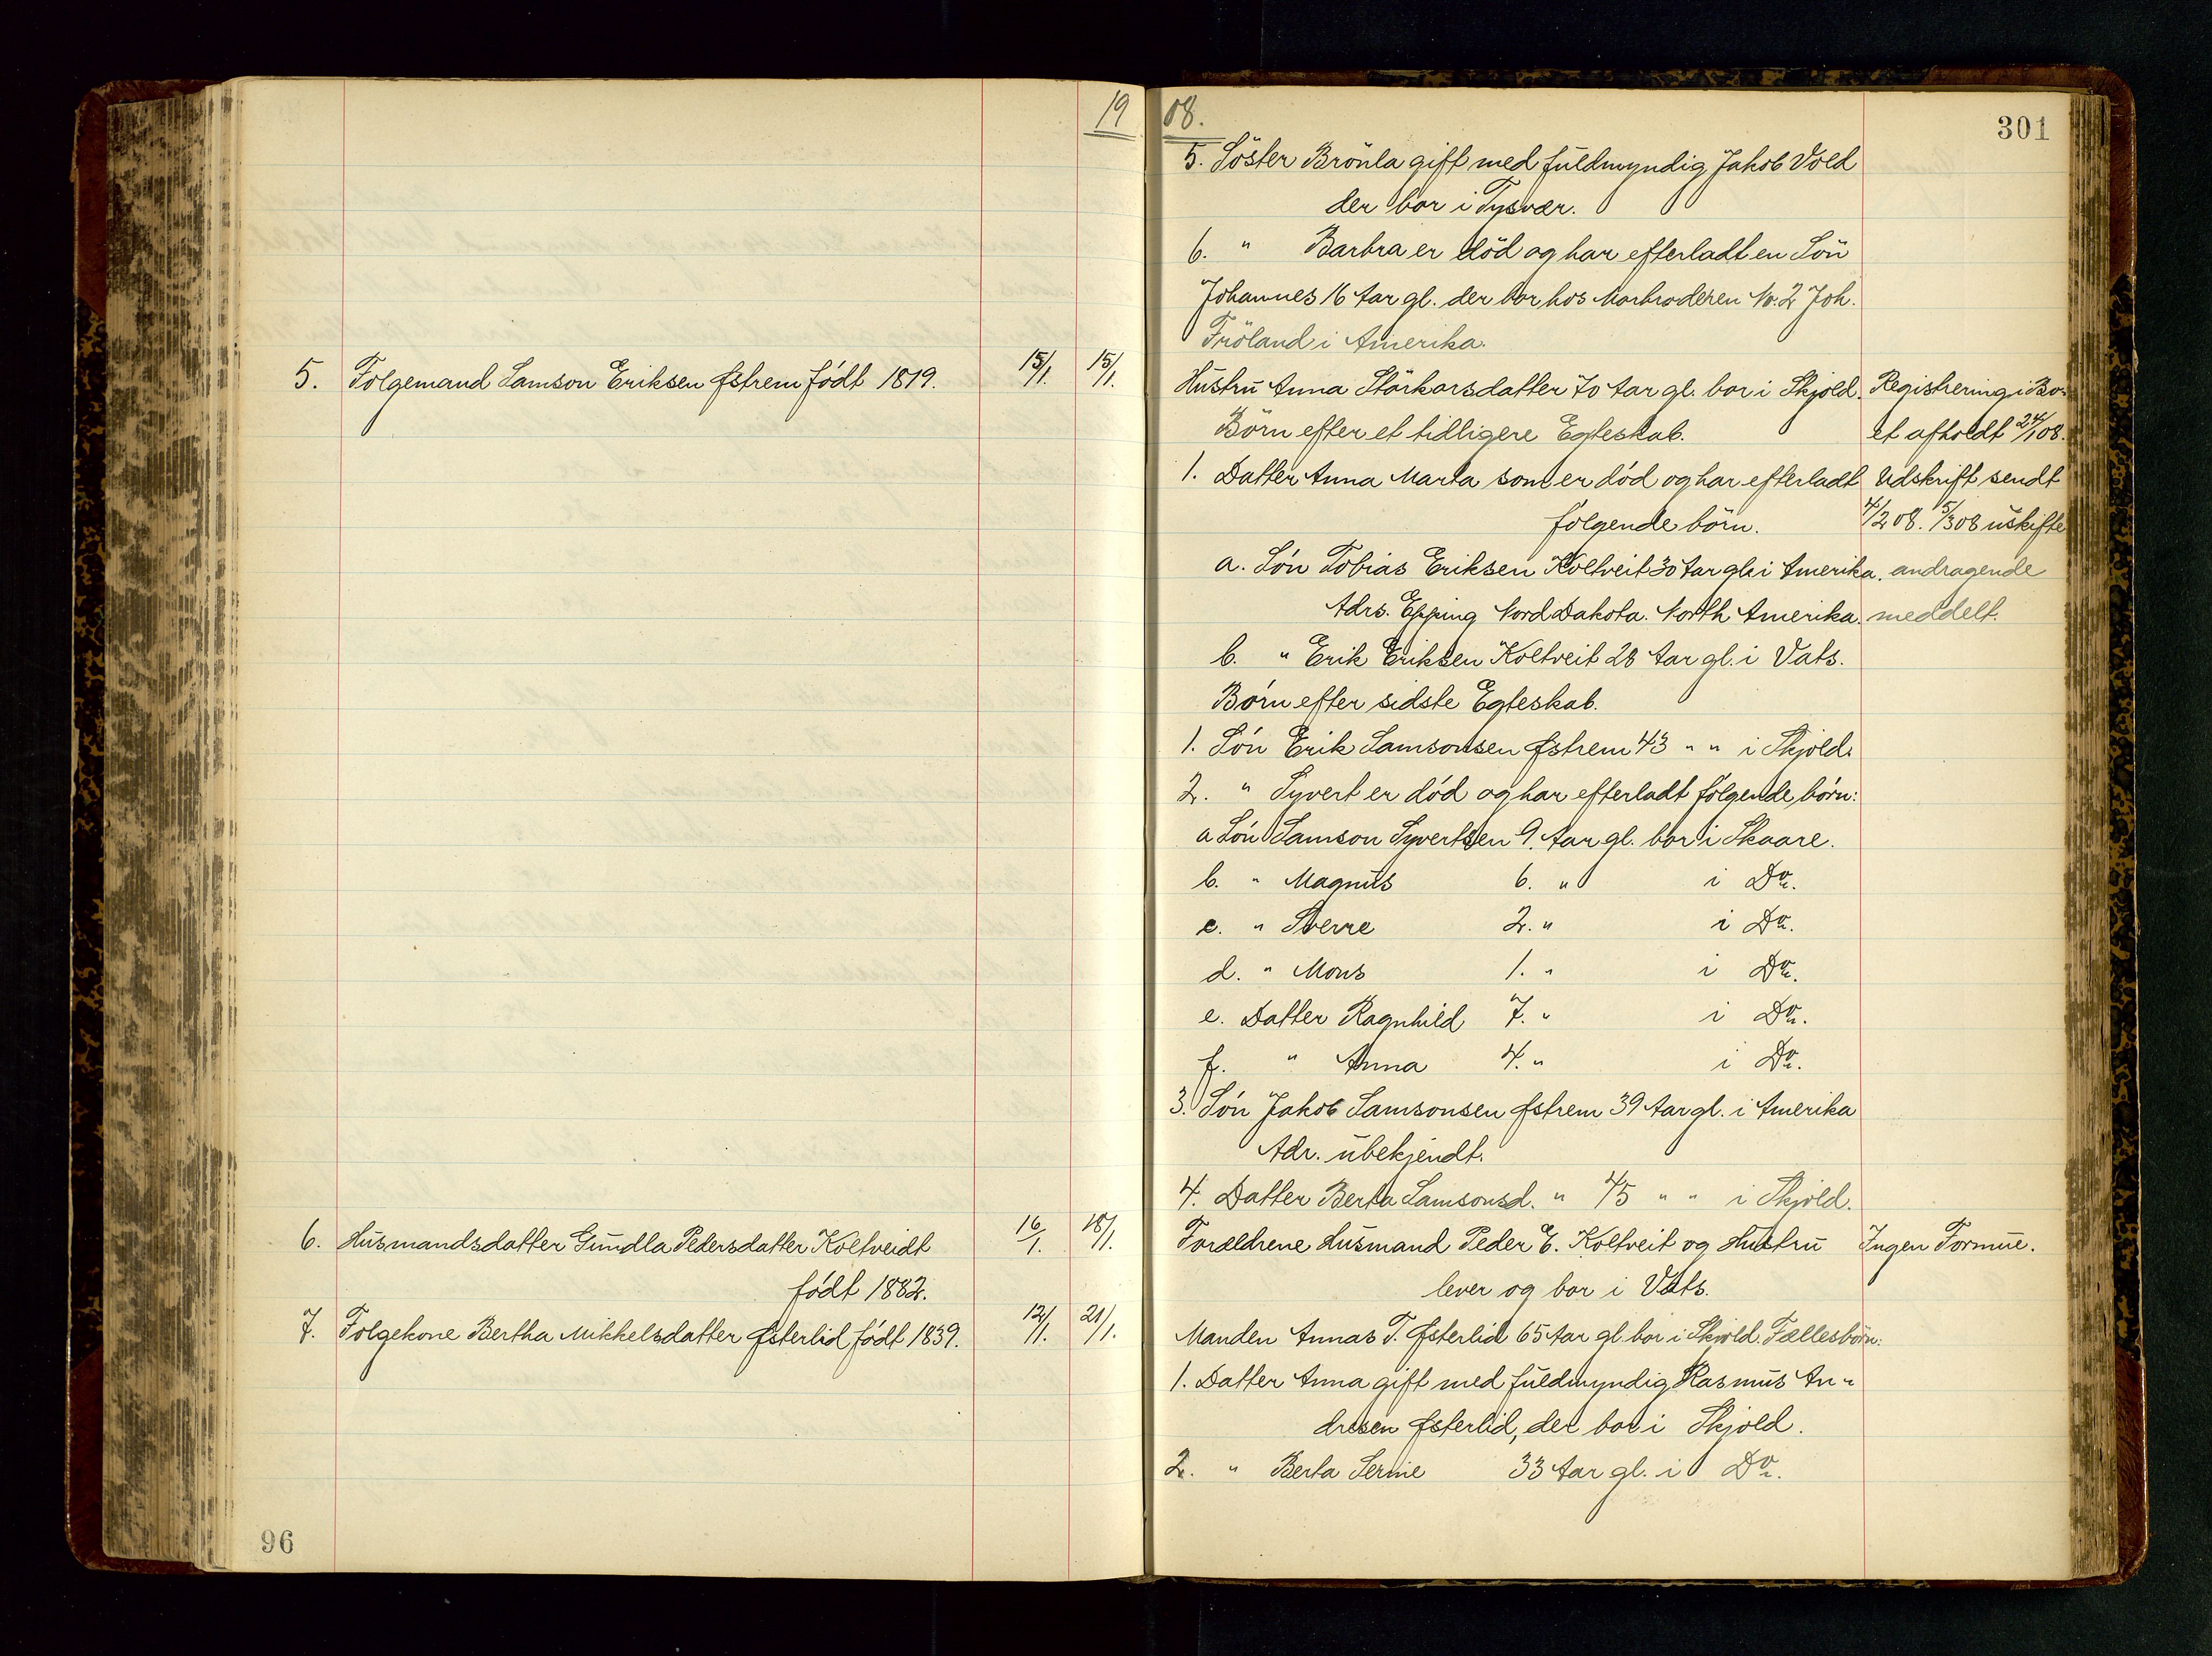 1908.
301
5. Söster Brönla gift med fuldmyndig Jakob Vold
der bor i Tysvær.
6. " Barbra er död og har efterladt en Sön
Johannes 16 Aar gl. der bor hos Morbroderen No. 2 Joh.
Fröland i Amerika.
5. Folgemand Samson Eriksen Østrem födt 1819. 15/1. 15/1. Hustru Anna Störkorsdatter 70 Aar gl. bor i Skjold. Registrering i Bo-
Börn efter et tidligere Egteskab. et afholdt 24/1 08.
1. Datter Anna Marta som er död og har efterladt Udskrift sendt
følgende börn. 4/2 08. 5/3 08 uskifte
a. Sön Tobias Eriksen Koltveit 30 Aar gl. i Amerika. andragende
Adrs. Epping Nord Dakota. North Amerika. meddelt.
b. " Erik Eriksen Koltveit 28 Aar gl. i Vats.
Börn efter sidste Egteskab.
1. Sön Erik Samsonsen Østrem 43 " " i Skjold.
2. " Syvert er död og har efterladt fölgende börn:
a Sön Samson Syvertsen 9. Aar gl. bor i Skaare.
b. " Magnus 6. " i Do.
c. " Sverre 2. " i Do.
d. " Mons 1. " i Do.
e. Datter Ragnhild 7. " i Do.
f. " Anna 4. " i Do.
3. Sön Jakob Samsonsen Østrem 39 Aar gl. i Amerika
Adr. ubekjendt.
4. Datter Berta Samsonsd. " 45 " " i Skjold.
6. Husmandsdatter Gundla Pedersdatter Koltveidt 16/1. 18/1. Forældrene Husmand Peder E. Koltveit og Hustru Ingen Formue.
födt 1882. lever og bor i Vats.
7. Folgekone Bertha Mikkelsdatter Østerlid födt 1839. 12/1. 21/1. Manden Annas T. Østerlid 65 Aar gl. bor i Skjold. Fællesbörn:
1. Datter Anna gift med fuldmyndig Rasmus An-
dresen Østerlid, der bor i Skjold.
2. " Berta Serine 33 Aar gl. i Do.
96